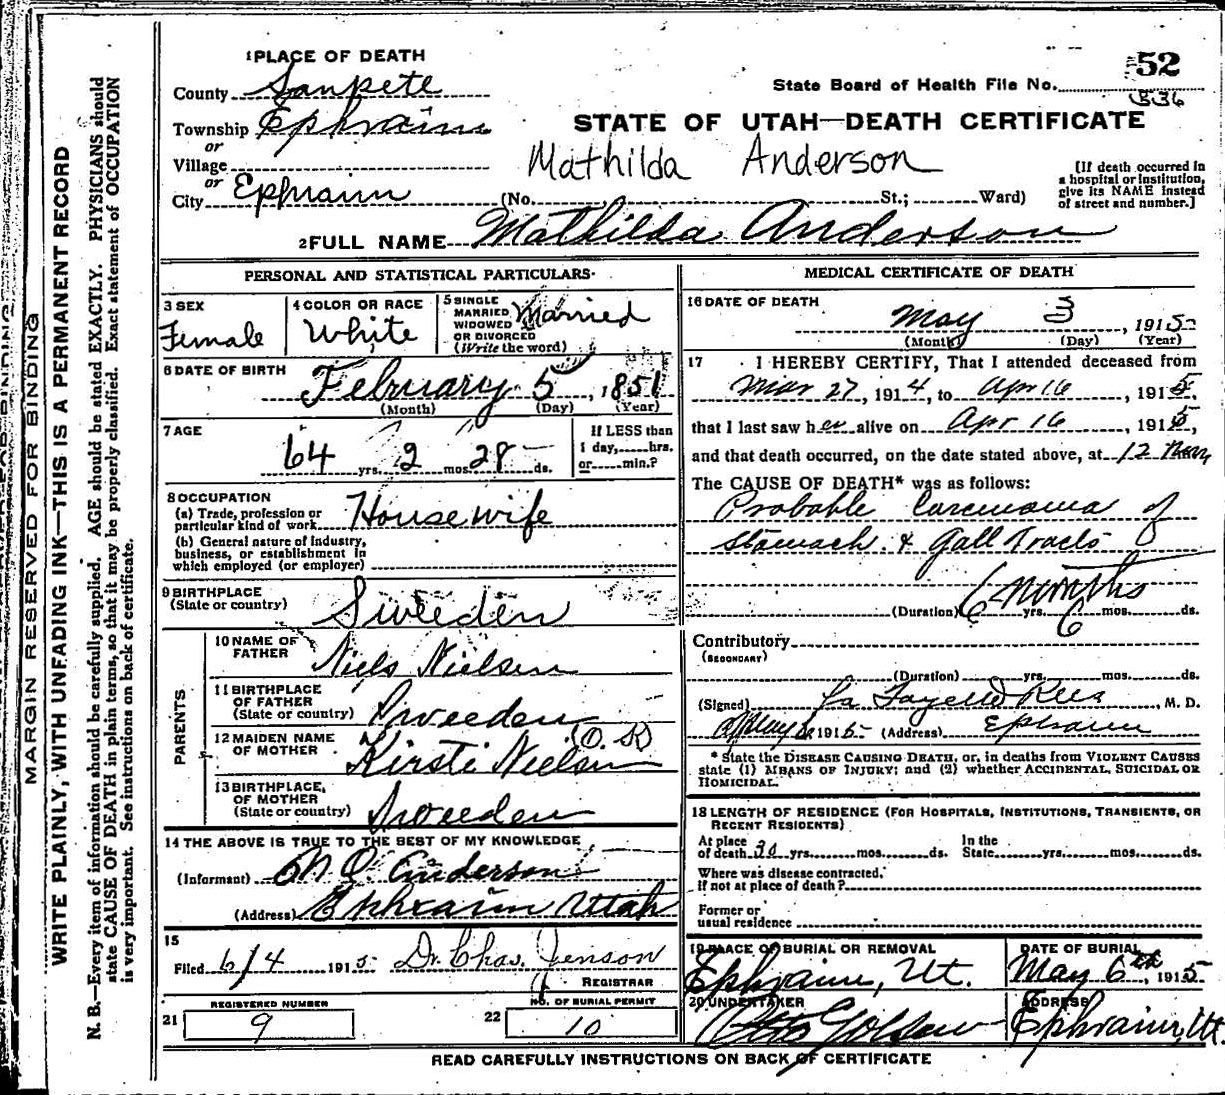 MARGIN RESERVED FOR BINDING
WRITE PLAINLY, WITH UNFADING INK—THIS IS A PERMANENT RECORD
N. B.—Every item of information should be carefully supplied. AGE should be stated EXACTLY. PHYSICIANS should
state CAUSE OF DEATH in plain terms, so that it may be properly classified. Exact statement of OCCUPATION
is very important. See instructions on back of certificate.
1 PLACE OF DEATH
County Sanpete
Township Ephraim
or
Village
or
City Ephraim
52
State Board of Health File No.
336
STATE OF UTAH—DEATH CERTIFICATE
Mathilda Anderson
(No. St.; Ward)
[If death occurred in
a hospital or institution,
give its NAME instead
of street and number.]
2 FULL NAME Mathilda Anderson
PERSONAL AND STATISTICAL PARTICULARS
3 SEX
Female
4 COLOR OR RACE
White
5 SINGLE
MARRIED
WIDOWED
OR DIVORCED
(Write the word)
Married
6 DATE OF BIRTH
February 5, 1851
(Month) (Day) (Year)
7 AGE
64 yrs. 2 mos. 28 ds.
If LESS than
1 day, hrs.
or min.?
8 OCCUPATION
(a) Trade, profession or
particular kind of work Housewife
(b) General nature of Industry,
business, or establishment in
which employed (or employer)
9 BIRTHPLACE
(State or country) Sweeden
PARENTS
10 NAME OF
FATHER Niels Nielsen
11 BIRTHPLACE
OF FATHER
(State or country) Sweeden
12 MAIDEN NAME
OF MOTHER Kirsti Nielsen (O.K)
13 BIRTHPLACE,
OF MOTHER
(State or country) Sweeden
14 THE ABOVE IS TRUE TO THE BEST OF MY KNOWLEDGE
(Informant) Anderson
(Address) Ephraim Utah
15
Filed 6/4 1915 Dr. Chas. Jenson
REGISTRAR
REGISTERED NUMBER
21 9
NO. OF BURIAL PERMIT
22 10
MEDICAL CERTIFICATE OF DEATH
16 DATE OF DEATH
May 3, 1915
(Month) (Day) (Year)
17 I HEREBY CERTIFY, That I attended deceased from
Mar 27, 1914, to Apr 16, 1915,
that I last saw her alive on Apr 16, 1915,
and that death occurred, on the date stated above, at 12
The CAUSE OF DEATH* was as follows:
Probable Carcinoma of
Stomach & Gall Tracts
6 months
(Duration) yrs. 6 mos. ds.
Contributory
(SECONDARY)
(Duration) yrs. mos. ds.
(Signed) La Fayette Rees, M. D.
May 1915 (Address) Ephraim
* State the DISEASE CAUSING DEATH, or, in deaths from VIOLENT CAUSES
state (1) MEANS OF INJURY; and (2) whether ACCIDENTAL, SUICIDAL OR
HOMICIDAL.
18 LENGTH OF RESIDENCE (FOR HOSPITALS, INSTITUTIONS, TRANSIENTS, OR
RECENT RESIDENTS)
At place
of death 30 yrs. mos. ds.
In the
State yrs. mos. ds.
Where was disease contracted,
If not at place of death?
Former or
usual residence
19 PLACE OF BURIAL OR REMOVAL
Ephraim, Ut.
DATE OF BURIAL
May 6th, 1915
20 UNDERTAKER
ADDRESS
Ephraim, Ut.
READ CAREFULLY INSTRUCTIONS ON BACK OF CERTIFICATE